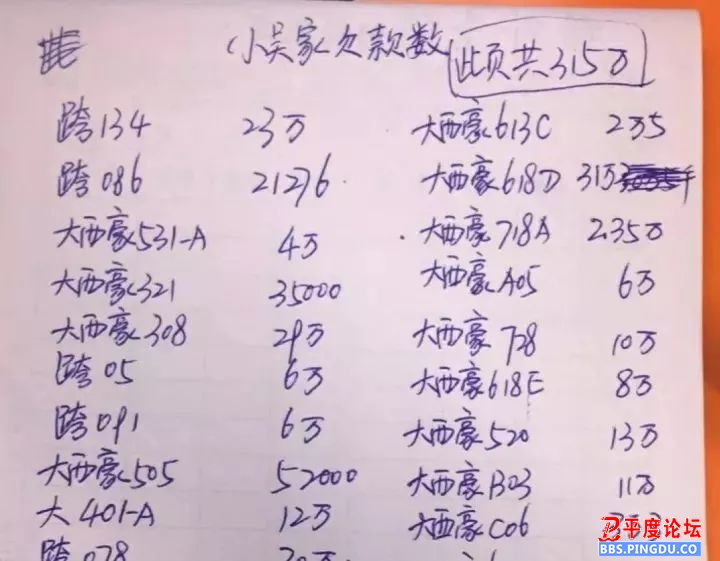 小吴家欠款数 此页共315万
跨134 23万 大西豪613C 2万5
跨086 21276 大西豪618D 31万
大西豪531-A 4万 大西豪718A 2.35万
大西豪321 35000 大西豪A05 6万
大西豪308 29万 大西豪728 10万
跨05 6万 大西豪618E 8万
跨091 6万 大西豪520 13万
大西豪505 52000 大西豪B03 11万
大401-A 12万 大西豪C06
跨078
平度论坛
BBS.PINGDU.CO